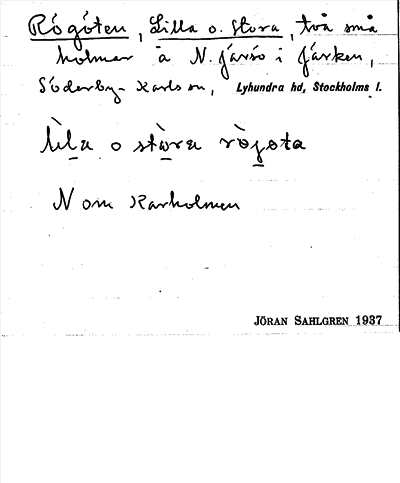 Rögöten, Lilla o. Stora, två små
holmar å N. Järsö i Järken,
Söderby-Karls sn, Lyhundra hd, Stockholms l.
lìla o stòra rògota
N om Karholmen
JÖRAN SAHLGREN 1937